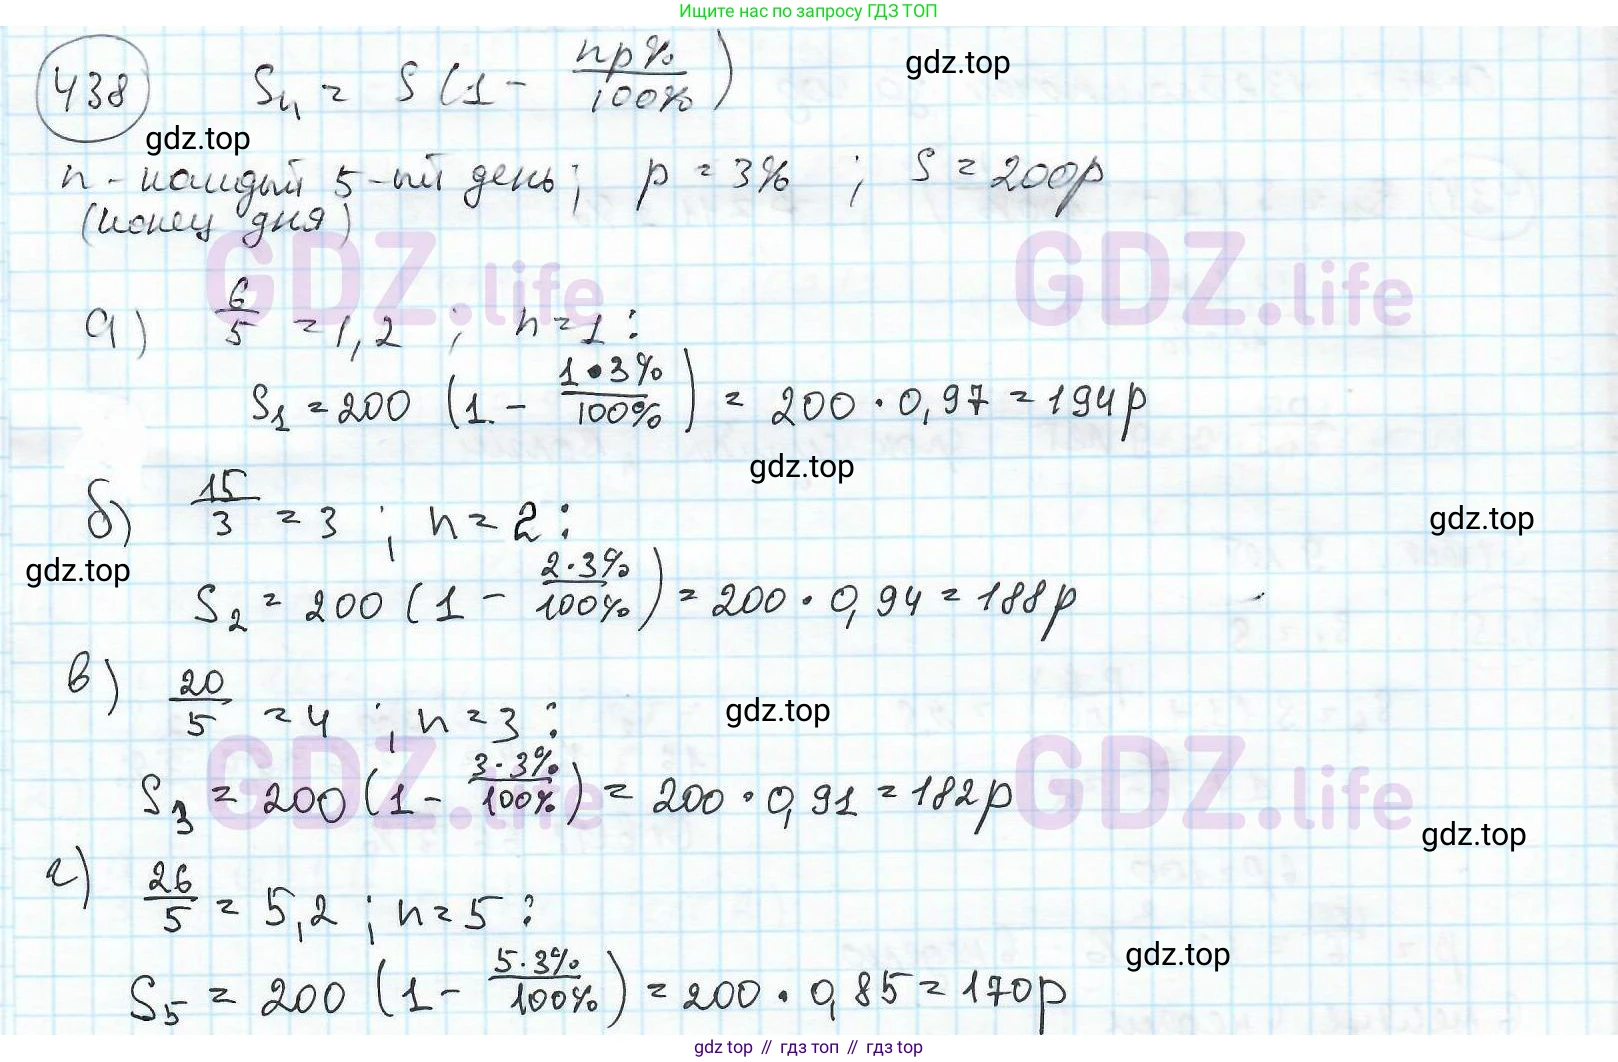 Ищите нас по запросу ГДЗ ТОП
438 Sₙ = S (1 - np% / 100%)
gdz.top
gdz.top
n - каждый 5-ый день; p = 3% ; S = 200р
(конец дня)
GDZ.life GDZ.life
а) 6/5 = 1,2 ; n = 1 :
S₁ = 200 (1 - 1·3% / 100%) = 200 · 0,97 = 194р
gdz.top
б) 15/3 = 3 ; n = 2 :
gdz.top
gdz.top
S₂ = 200 (1 - 2·3% / 100%) = 200 · 0,94 = 188р
в) 20/5 = 4 ; n = 3 :
gdz.top
GDZ.life GDZ.life
S₃ = 200 (1 - 3·3% / 100%) = 200 · 0,91 = 182р
gdz.top
г) 26/5 = 5,2 ; n = 5 :
gdz.top
S₅ = 200 (1 - 5·3% / 100%) = 200 · 0,85 = 170р
gdz top // гдз топ // гдз top